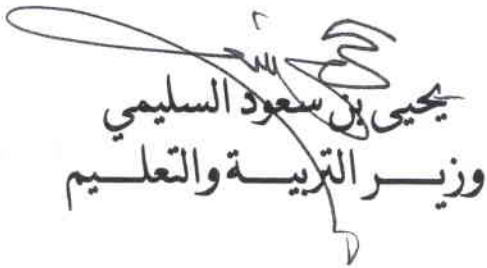 يحيى بن سعود السليمي
وزيـــر التربيـــة والتعلـــيم